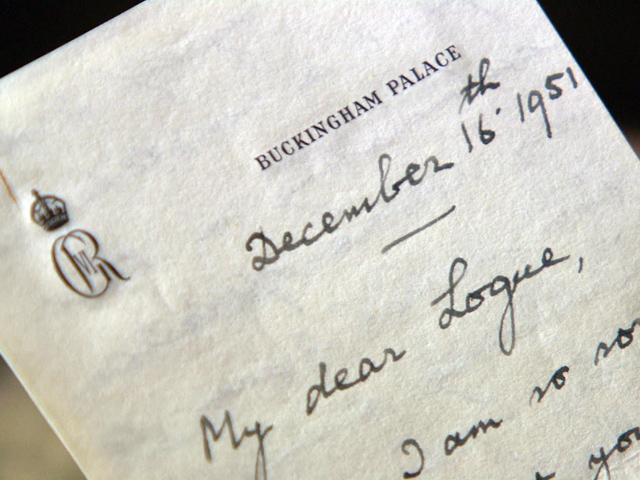 BUCKINGHAM PALACE
December 16th 1951
My dear Logue,
I am so